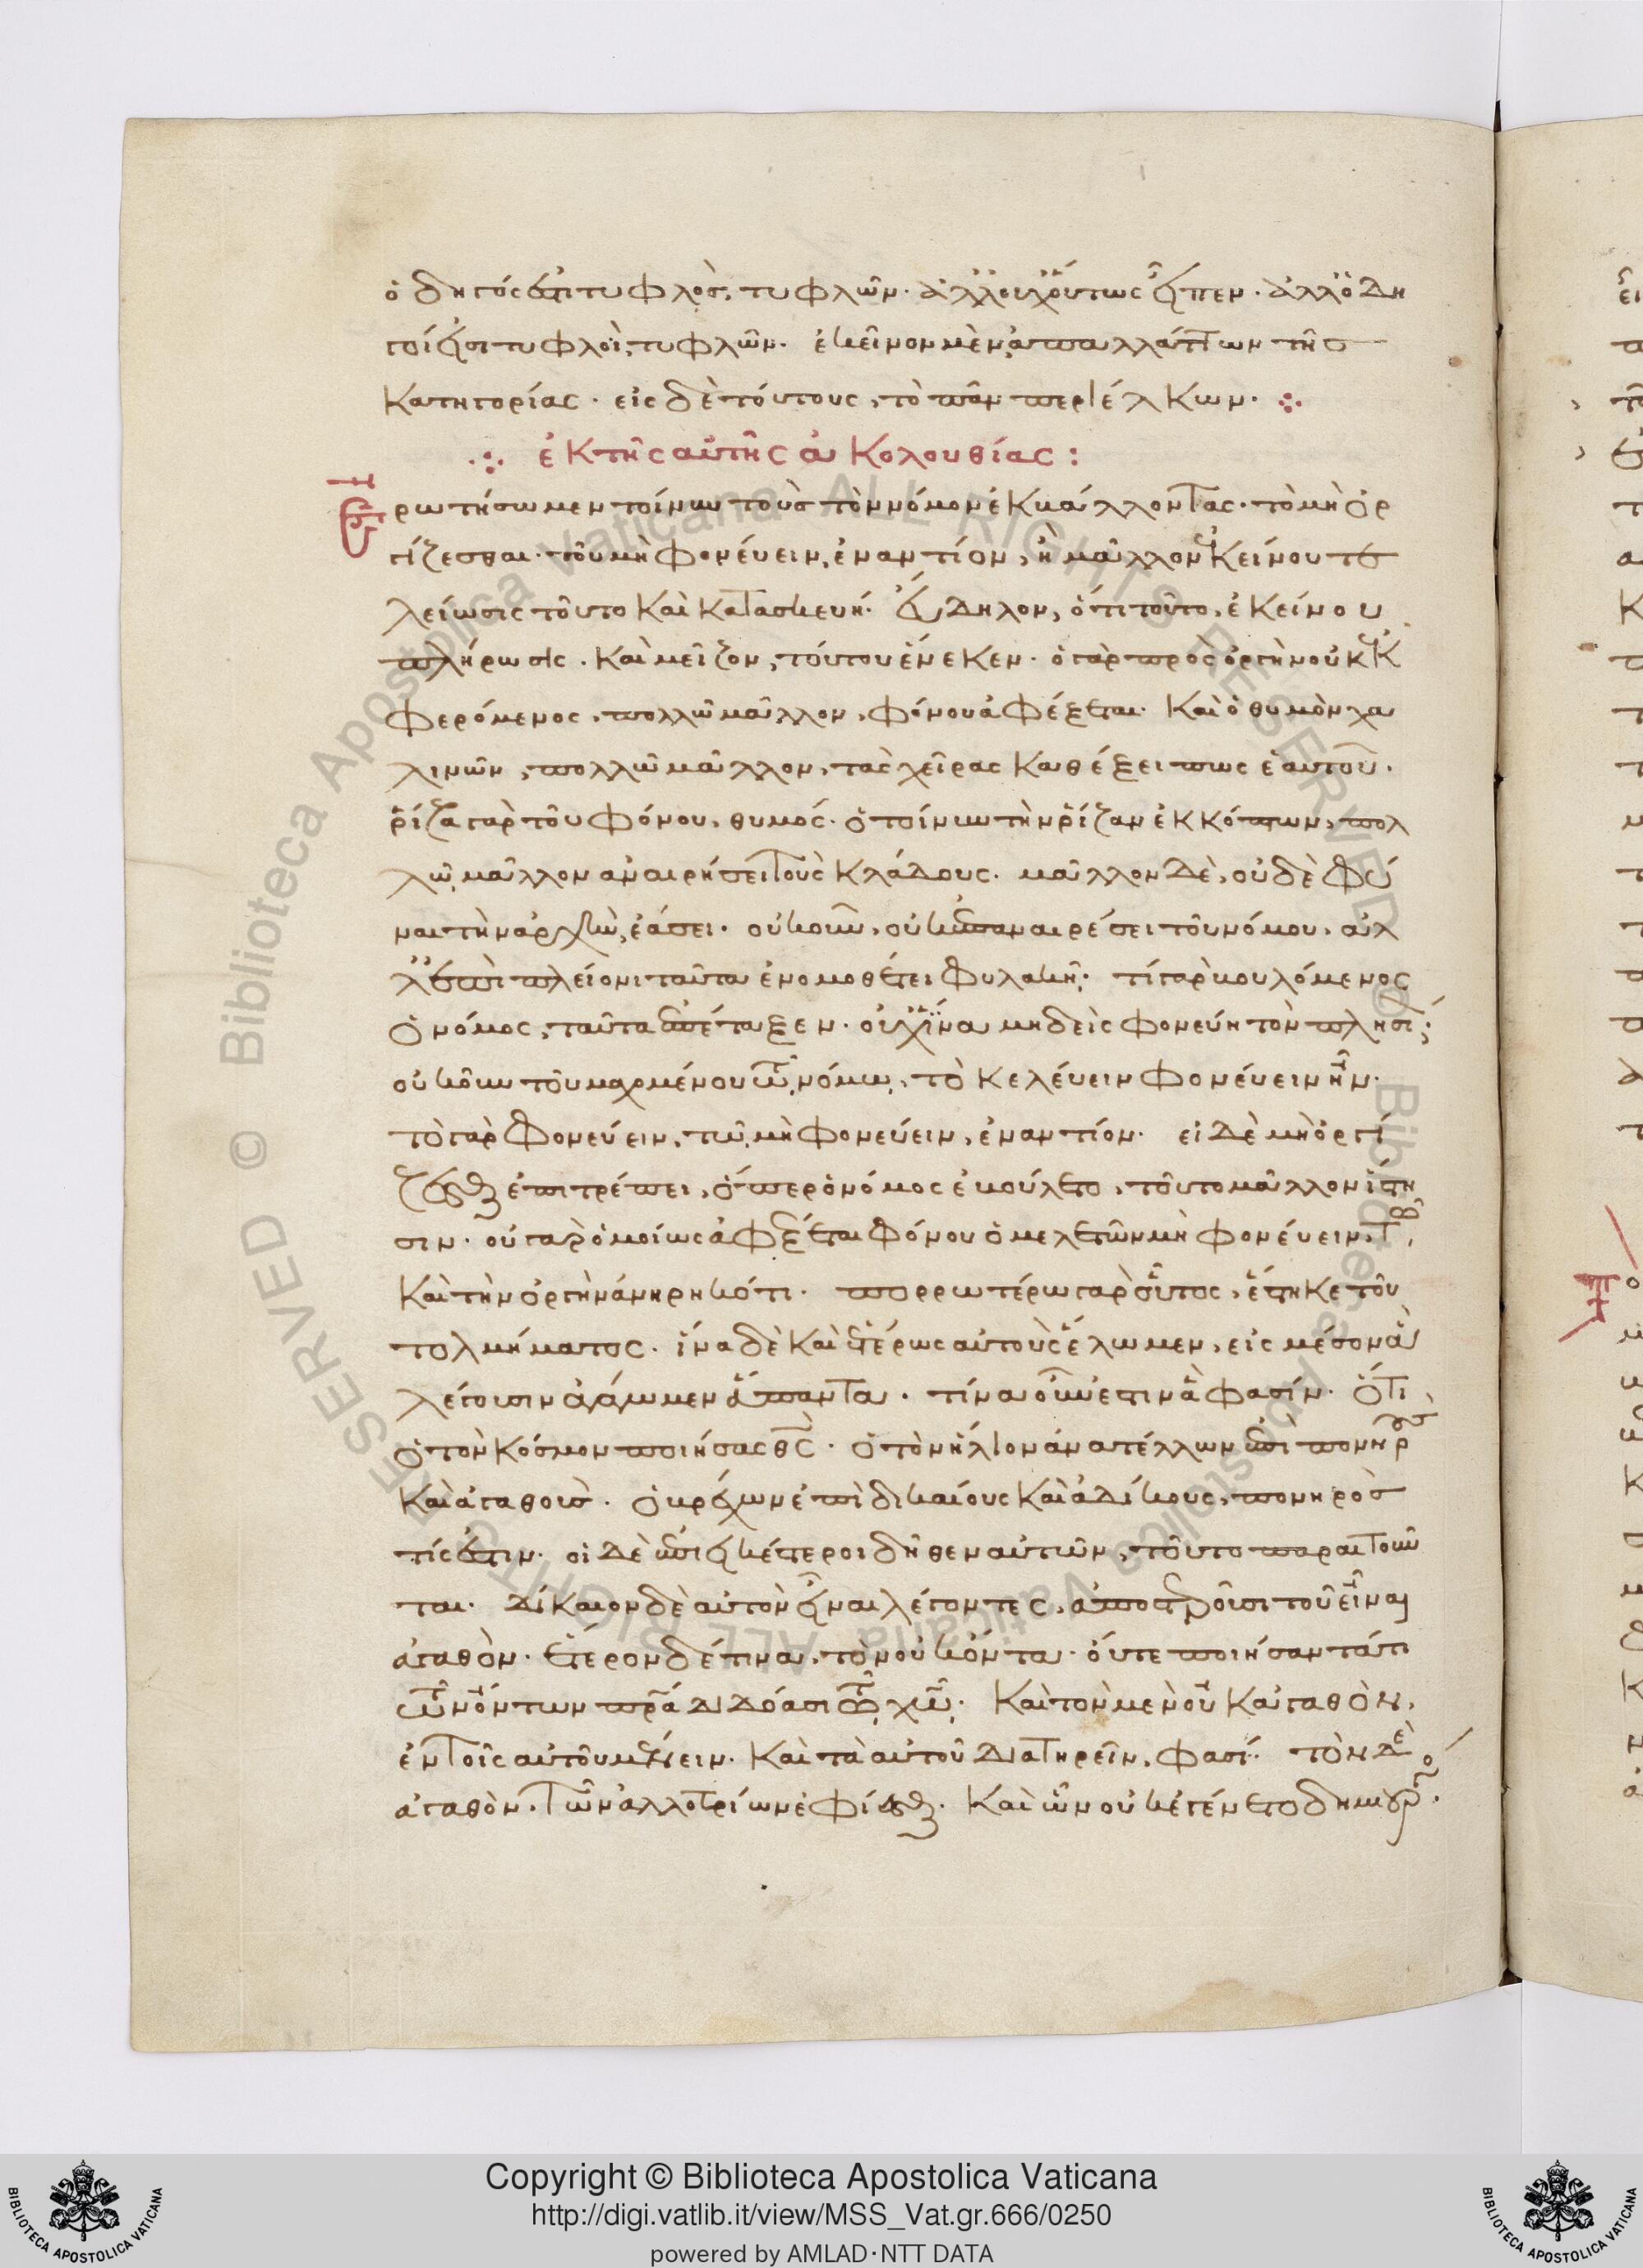 ὁδηγός ἐστι τυφλὸς, τυφλῶν. ἀλλ' οὐχ οὕτως εἶπεν. ἀλλ' ὁδη
γοί εἰσι τυφλοὶ, τυφλῶν. ἐκεῖνον μὲν, ἀπαλλάττων τῆς
κατηγορίας. εἰς δὲ τούτους, τὸ πᾶν περιέλκων.
ἐκ τῆς αὐτῆς ἀκολουθίας:
Ἐρωτήσωμεν τοίνυν τοὺς τὸν νόμον ἐκβάλλοντας. τὸ μὴ ὀρ
γίζεσθαι. τοῦ μὴ φονεύειν, ἐναντίον, ἢ μᾶλλον ἐκείνου τε
λείωσις τοῦτο καὶ κατασκευή. εὔδηλον, ὅτι τοῦτο, ἐκείνου
πλήρωσις. καὶ μεῖζον, τούτου ἕνεκεν. ὁ γὰρ πρὸς ὀργὴν οὐκ ἐκ
φερόμενος, πολλῶ μᾶλλον, φόνου ἀφέξεται. καὶ ὁ θυμὸν χα
λινῶν, πολλῶ μᾶλλον, τὰς χεῖρας καθέξει πως ἑαυτοῦ.
ῥίζα γὰρ τοῦ φόνου, θυμός. ὁ τοίνυν τὴν ῥίζαν ἐκκόπτων, πολ
λῶ μᾶλλον ἀναιρήσει τοὺς κλάδους. μᾶλλον δὲ, οὐδὲ φύ
ναι τὴν ἀρχὴν, ἐάσει. οὐκοῦν, οὐκ ἐπ' ἀναιρέσει τοῦ νόμου, ἀλ
λ' ἐπὶ πλείονι ταῦτα ἐνομοθέτει φυλακῆ. τί γὰρ βουλόμενος
ὁ νόμος, ταῦτα ἐπέταξεν. οὐχ ἵνα μηδεὶς φονεύη τὸν πλησί
οὐκοῦν τοῦ μαχομένου τῶ νόμω, τὸ κελεύειν φονεύειν ἦν.
τὸ γὰρ φονεύειν, τῶ μὴ φονεύειν, ἐναντίον. εἰ δὲ μὴ ὀργί
ζεσθαι ἐπιτρέπει, ὅπερ ὁ νόμος ἐβούλετο, τοῦτο μᾶλλον ἵστη
σιν. οὐ γὰρ ὁμοίως ἀφέξεται φόνου ὁ μελετῶν μὴ φονεύειν, τ
καὶ τὴν ὀργὴν ἀνηρηκότι. πορρωτέρω γὰρ οὗτος, ἕστηκε τοῦ
τολμήματος. ἵνα δὲ καὶ ἑτέρως αὐτοὺς ἕλωμεν, εἰς μέσον ἃ
λέγουσιν ἀγάγωμεν ἅπαντα. τίνα οὖν ἐστιν ἃ φασίν. ὅτι
ὁ τὸν κόσμον ποιήσας θς. ὁ τὸν ἥλιον ἀνατέλλων ἐπὶ πονηρ
καὶ ἀγαθοὺς. ὁ βρέχων ἐπὶ δικαίους καὶ ἀδίκους, πονηρὸς
τίς ἐστιν. οἱ δὲ ἐπιεικέστεροι δῆθεν αὐτῶν, τοῦτο παραιτοῦν
ται. δίκαιον δὲ αὐτὸν εἶναι λέγοντες, ἀποστεροῦσι τοῦ εἶναι
ἀγαθὸν. ἕτερον δέ τινα, τὸν οὐκ ὄντα. οὔτε ποιήσαντά τι
τῶν ὄντων πρα διδόασι τῶ χῶ. καὶ τὸν μὲν οὐκ ἀγαθὸν,
ἐν τοῖς αὐτοῦ μένειν. καὶ τὰ αὐτοῦ διατηρεῖν, φασί. τὸν δὲ
ἀγαθὸν, τῶν ἀλλοτρίων ἐφίεσθαι. καὶ ὧν οὐκ ἐγένετο δημιουργ
Copyright © Biblioteca Apostolica Vaticana
http://digi.vatlib.it/view/MSS_Vat.gr.666/0250
powered by AMLAD·NTT DATA